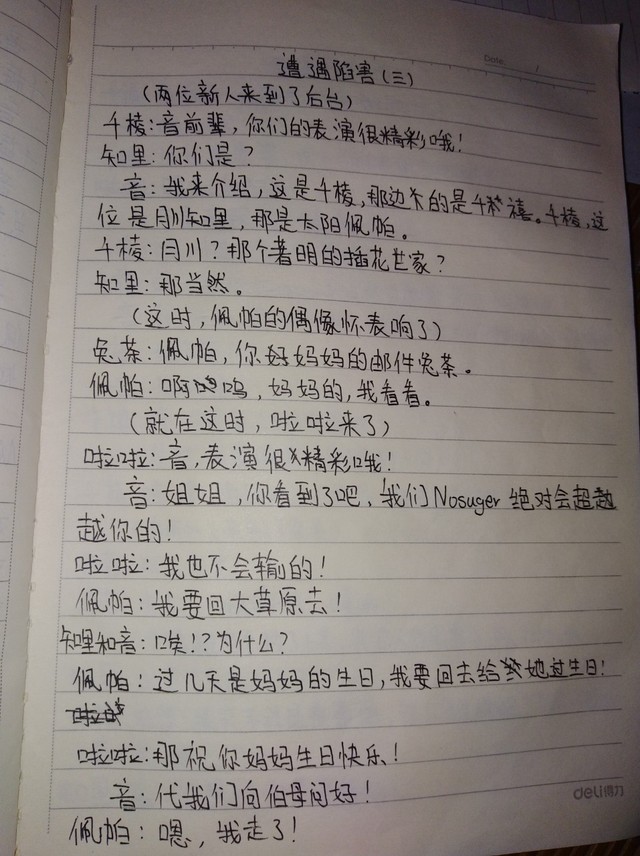 Date /
遭遇陷害(三)
(两位新人来到了后台)
千棱:音前辈,你们的表演很精彩哦!
知里:你们是?
音:我来介绍,这是千棱,那边的是千禧。千棱,这
位是月川知里,那是太阳佩帕。
千棱:月川?那个著明的插花世家?
知里:那当然。
(这时,佩帕的偶像怀表响了)
兔茶:佩帕,你好妈妈的邮件兔茶。
佩帕:啊呜呜,妈妈的,我看看。
(就在这时,啦啦来了)
啦啦:音,表演很精彩哦!
音:姐姐,你看到了吧,我们Nosuger绝对会超越
越你的!
啦啦:我也不会输的!
佩帕:我要回大草原去!
知里和音:唉!?为什么?
佩帕:过几天是妈妈的生日,我要回去给她过生日!
啦啦:那祝你妈妈生日快乐!
音:代我们向伯母问好!
佩帕:嗯,我走了!
deli得力